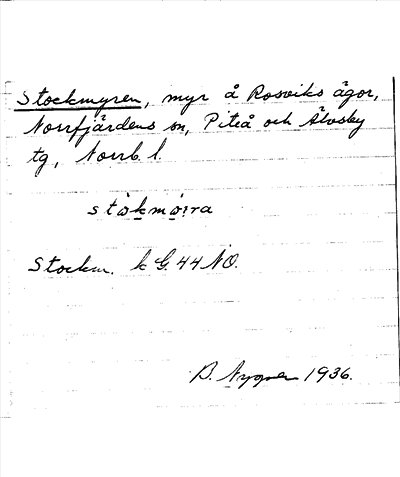 Stockmyren, myr å Rosviks ägor,
Norrfjärdens sn, Piteå och Älvsby
tg, Norrb. l.
Stockm. k G. 44 NO.
B. 1936.